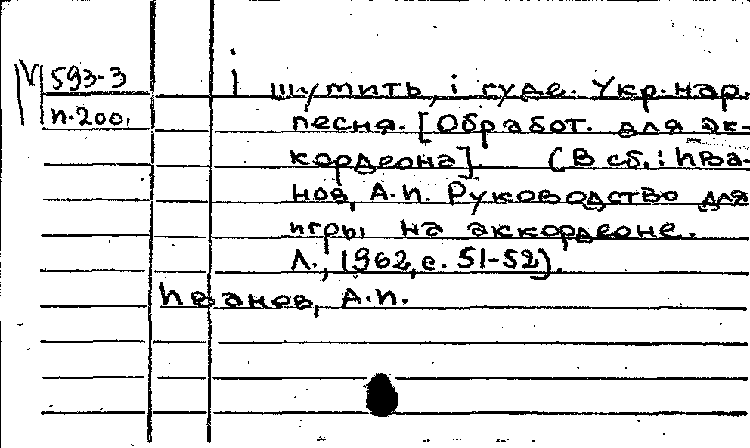 М 593-3
п.200,
І шумить, і гуде. Укр. нар.
песня. [Обработ. для ак-
кордеона]. (В сб.: Ива-
нов, А.П. Руководство для
игры на аккордеоне.
Л., 1962, с. 51-52).
Иванов, А.П.